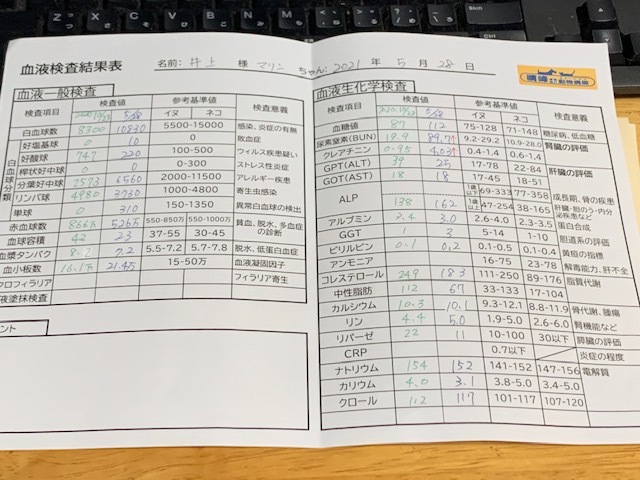 血液検査結果表
名前: 井上 様 マリン ちゃん: 2021 年 5 月 28 日
血液一般検査
検査項目 検査値 参考基準値 検査意義
5/28 イヌ ネコ
白血球分類
白血球数 8300 10830 5500-15000 感染、炎症の有無
好塩基球 0 10 0 敗血症
好酸球 747 220 100-500 ウィルス疾患疑い
桿状好中球 0 0 0-300 ストレス性炎症
分葉好中球 2573 6560 2000-11500 アレルギー疾患
リンパ球 4980 3730 1000-4800 寄生虫感染
単球 0 310 150-1350 異常白血球の検出
赤血球数 866万 526万 550-850万 550-1000万 貧血、脱水、多血症の診断
血球容積 42 23 37-55 30-45
血漿タンパク 8.2 7.2 5.5-7.2 5.7-7.8 脱水、低蛋白血症
血小板数 16.1万 21.4万 15-50万 血液凝固因子
クロフィラリア フィラリア寄生
液塗抹検査
ント
血液生化学検査
検査項目 検査値 参考基準値 検査意義
5/28 イヌ ネコ
血糖値 87 112 75-128 71-148 糖尿病、低血糖
尿素窒素(BUN) 19.9 89.7↑ 9.2-29.2 10.9-28.0 腎臓の評価
クレアチニン 0.95 4.03↑ 0.4-1.4 0.6-1.4
GPT(ALT) 39 25 17-78 22-84 肝臓の評価
GOT(AST) 18 18 17-45 18-51
ALP 138 162 1歳以下 69-333 77-358 成長期、骨の疾患
1歳以上 47-254 38-165 肝臓・胆のう・内分泌疾患など
アルブミン 2.4 3.0 2.6-4.0 2.3-3.5 蛋白合成
GGT 3 5-14 1-10 胆道系の評価
ビリルビン 0.1 0.2 0.1-0.5 0.1-0.4 黄疸の指標
アンモニア 16-75 23-78 解毒能力、肝不全
コレステロール 249 183 111-250 89-176 脂質代謝
中性脂肪 112 67 33-133 17-104
カルシウム 10.3 10.1 9.3-12.1 8.8-11.9 骨代謝、腫瘍
リン 4.4 5.0 1.9-5.0 2.6-6.0 腎機能など
リパーゼ 22 11 10-100 30以下 膵臓の評価
CRP 0.7以下 炎症の程度
ナトリウム 154 152 141-152 147-156 電解質
カリウム 4.0 3.1 3.8-5.0 3.4-5.0
クロール 112 117 101-117 107-120